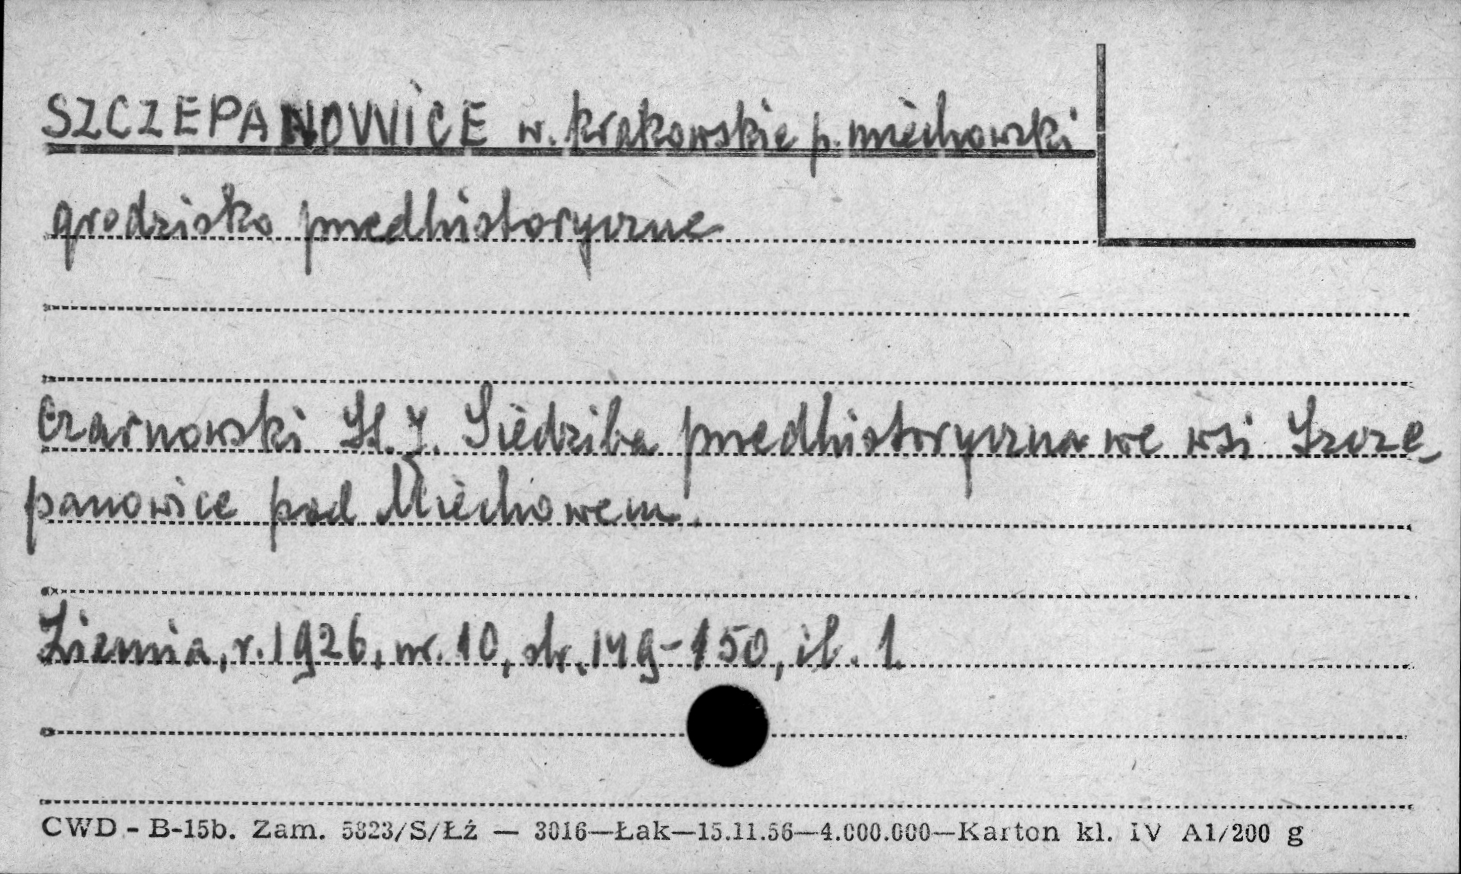 SZCZEPANOWICE w. krakowskie p. miechowski
grodzisko przedhistoryczne
Czarnowski St. J. Siedziba przedhistoryczna we wsi Szcze-
panowice pod Miechowem.
Ziemia, r. 1926, nr. 10, str. 149-150, il. 1
CWD - B-15b. Zam. 5823/S/Łż — 3016—Łak—15.11.56—4.000.000—Karton kl. IV A1/200 g